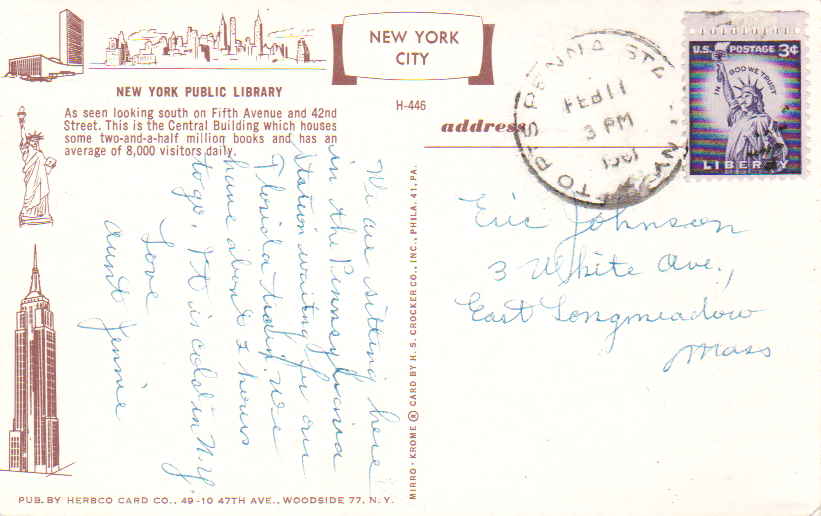 NEW YORK
CITY
NEW YORK PUBLIC LIBRARY
As seen looking south on Fifth Avenue and 42nd
Street. This is the Central Building which houses
some two-and-a-half million books and has an
average of 8,000 visitors daily.
H-446
address
PENNA STA
FEB 11
3 PM
U.S. POSTAGE 3¢
IN GOD WE TRUST
LIBERTY
We are sitting here
in the Pennsylvania
Station waiting for our
Florida train. We
have about 2 hours
to go. It is cold in N.Y.
Love
Aunt Jennie
Eric Johnson
3 White Ave.,
East Longmeadow
Mass
MIRRO-KROME ® CARD BY H. S. CROCKER CO., INC., PHILA. 41, PA.
PUB. BY HERBCO CARD CO., 49-10 47TH AVE., WOODSIDE 77, N.Y.